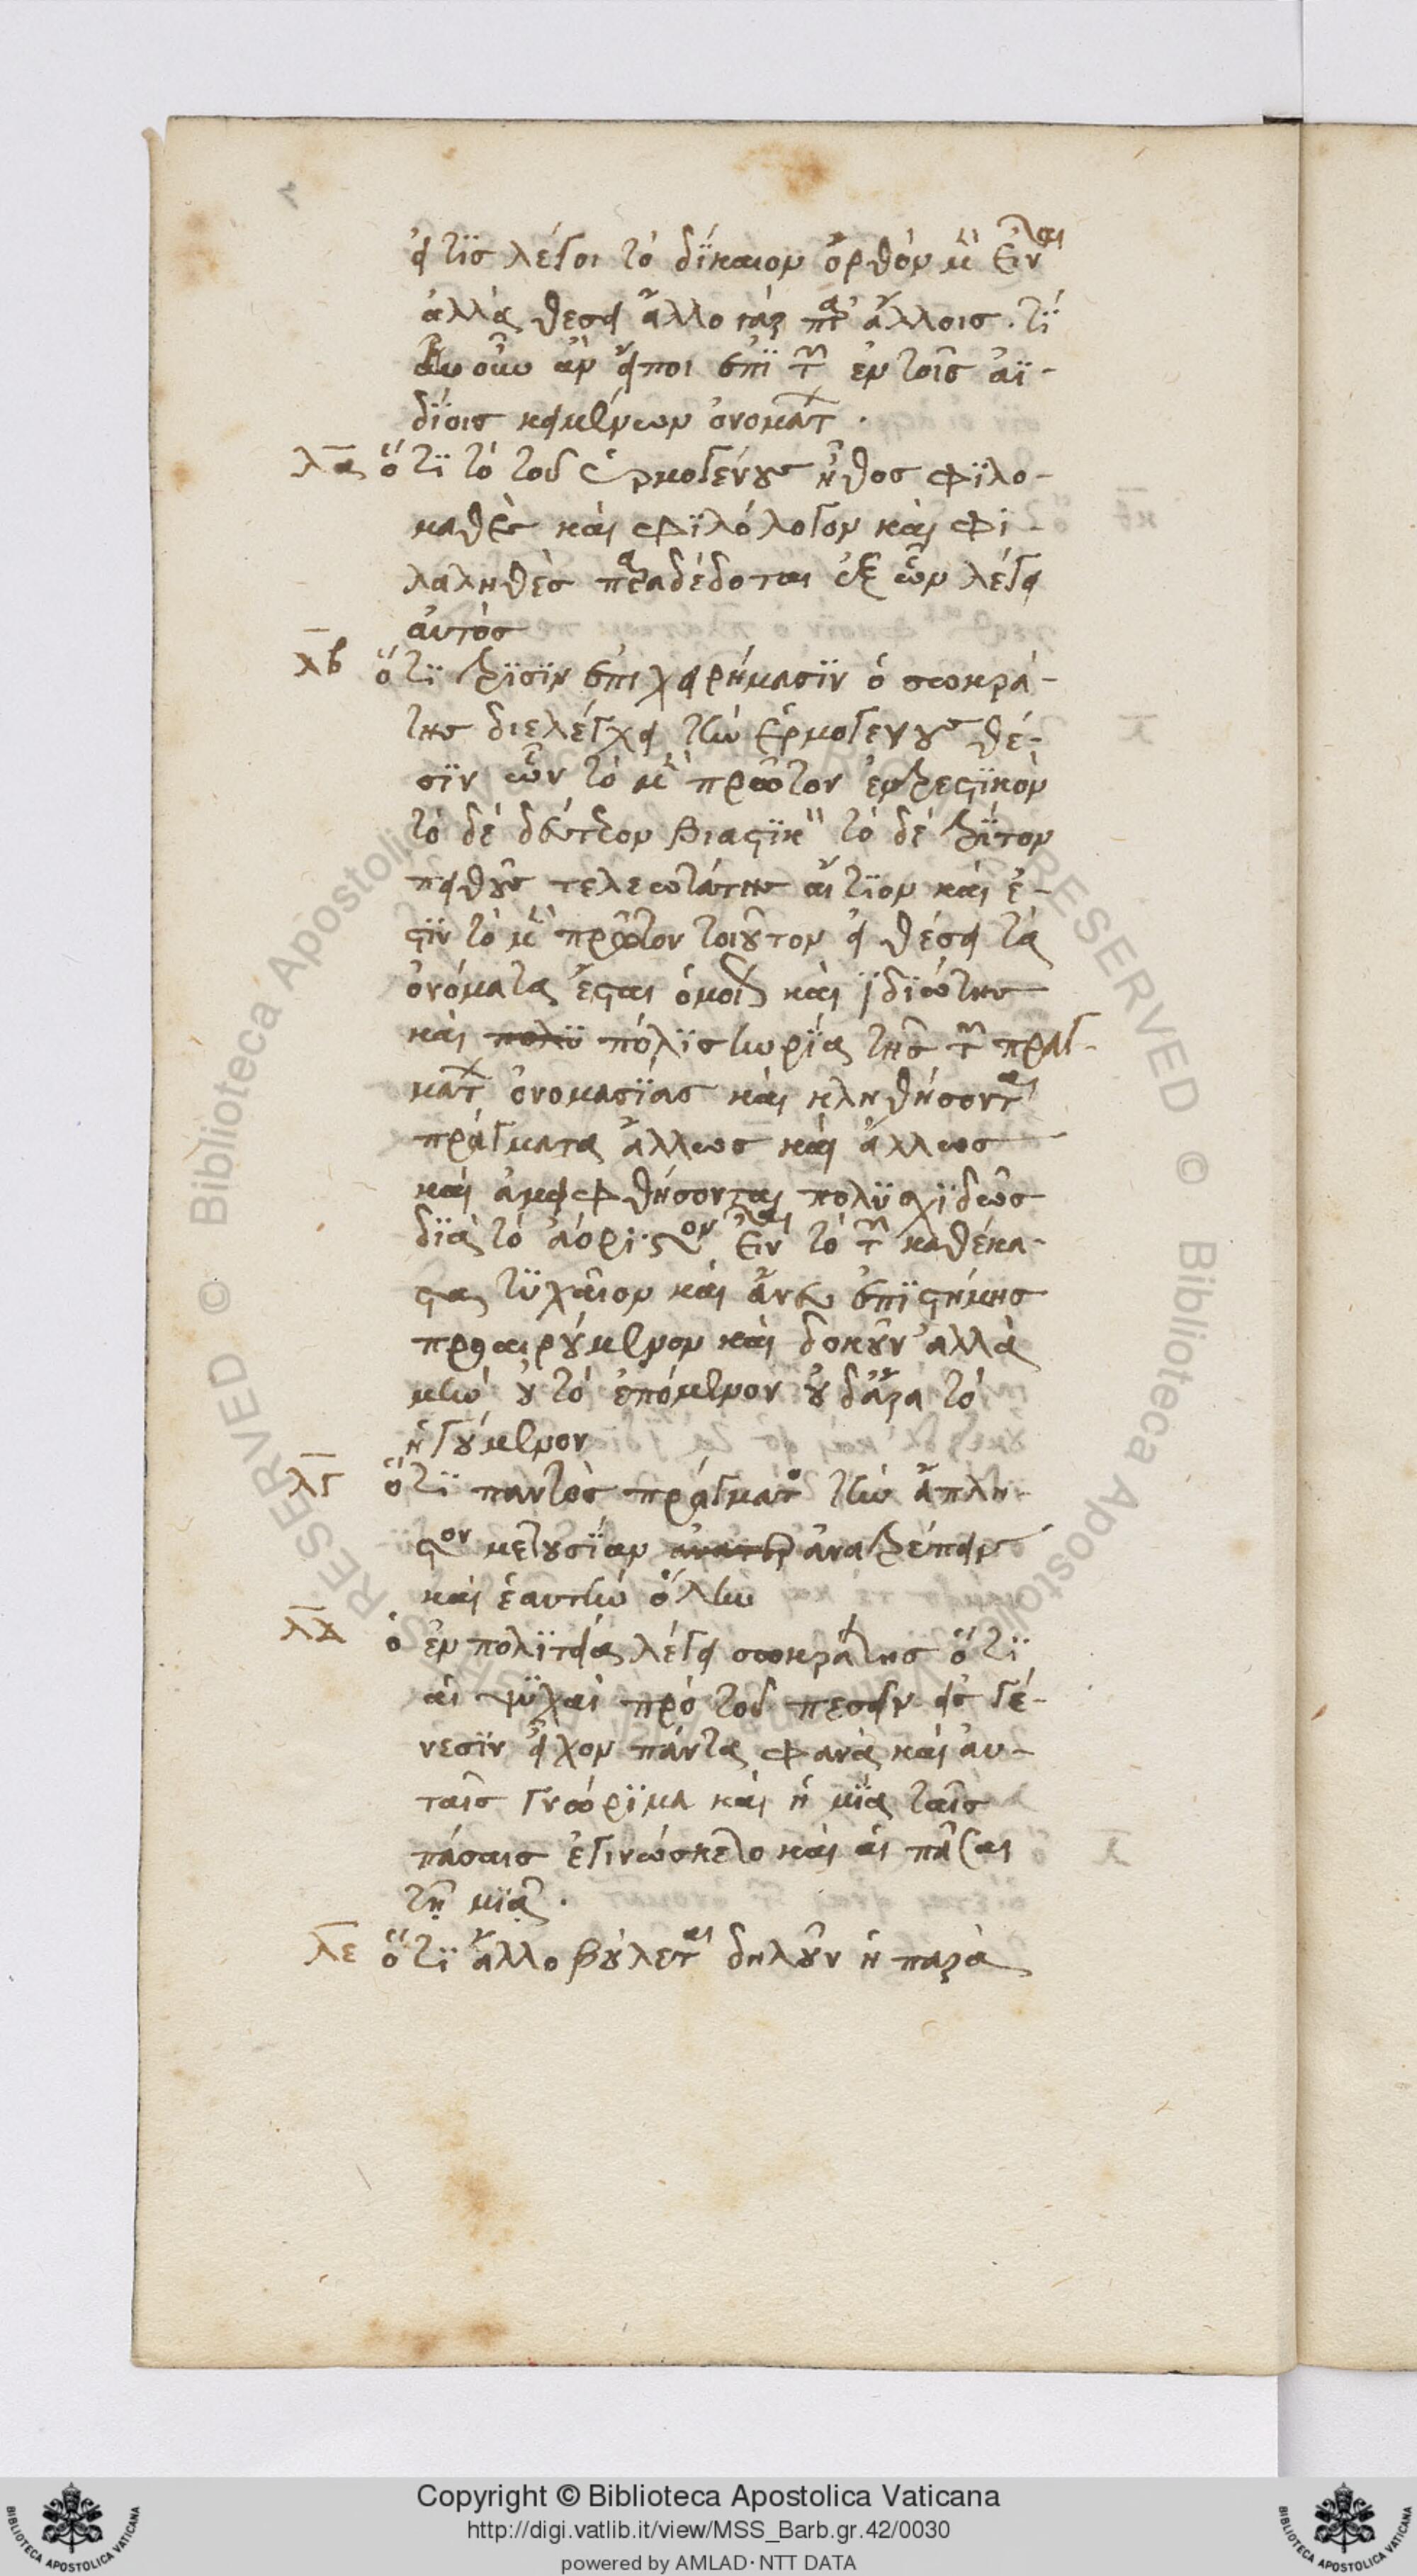 εἴ τϊς λέγοι τὸ δίκαιον ὀρθὸν μὲν εἶναι
ἀλλὰ θέσει ἄλλο γὰρ παρ' ἄλλοις. τί
οὖν ἂν εἴποι ἐπὶ τῶν ἐν τοῖς ἀϊ-
δίοις κειμένων ὀνομάτων.
λα ὅτι τὸ τοῦ ἑρμογένους ἦθος φϊλο-
μαθὲς καὶ φϊλόλογον καὶ φι-
λαληθὲς παραδέδοται ἐξ ὧν λέγει
αὐτός
λβ ὅτι τρϊσὶν ἐπιχειρήμασϊν ὁ σωκρά-
της διελέγχει τὴν ἑρμογένους θέ-
σϊν ὧν τὸ μὲν πρῶτον ἐντρεπτϊκὸν
τὸ δὲ δεύτερον βιαστϊκὸν τὸ δὲ τρίτον
πειθοῦς τελεωτάτης αἴτϊον καὶ ἔ-
στϊν τὸ μὲν πρῶτον τοιοῦτον εἰ θέσει τὰ
ὀνόματα ἔσται ὁμοίως καὶ ϊδϊώτης
καὶ πολϋ πόλϊς κυρία τῆς τῶν πραγ-
μάτων ὀνομασϊας καὶ κληθήσονται
πράγματα ἄλλως καὶ ἄλλως
καὶ ἀμειφθήσονται πολϋειδῶς
δϊὰ τὸ ἀόριστον εἶναι τὸ τῶν καθέκα-
στα τϋχαῖον καὶ ἄνευ ἐπϊστήμης
προαιρούμενον καὶ δοκοῦν ἀλλὰ
μὴν οὐ τὸ ἑπόμενον οὐδ' ἄρα τὸ
ἡγούμενον
λγ ὅτι παντὸς πράγματος τὴν ἄπλη-
στον μετουσϊαν ἀνατρέπειν
καὶ ἑαυτὴν ὅλην
λδ ὁ ἐν πολϊτείᾳ λέγει σωκράτης ὅτϊ
αἱ ψϋχαὶ πρὸ τοῦ πεσεῖν εἰς γέ-
νεσϊν εἶχον πάντα φανὰ καὶ αὐ-
ταῖς γνώρϊμα καὶ ἡ μία ταῖς
πάσαις ἐγινώσκετο καὶ αἱ πᾶσαι
τῇ μϊᾷ.
λε ὅτϊ ἄλλο βούλεται δηλοῦν ἡ παρὰ
RESERVED © Biblioteca Apostolica Vaticana
Copyright © Biblioteca Apostolica Vaticana
http://digi.vatlib.it/view/MSS_Barb.gr.42/0030
powered by AMLAD·NTT DATA
BIBLIOTECA APOSTOLICA VATICANA
BIBLIOTECA APOSTOLICA VATICANA